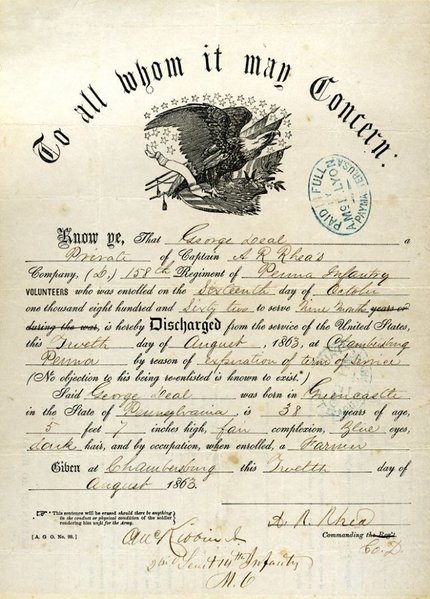 To all whom it may Concern:
PAID IN FULL
LYON
PAYMASTER USA
Know ye, That George Deal a
Private of Captain A R Rhea's
Company, (D,) 158th Regiment of Penna Infantry
VOLUNTEERS who was enrolled on the Sixteenth day of October
one thousand eight hundred and Sixty two to serve Nine Months years or
during the war, is hereby Discharged from the service of the United States,
this Twelth day of August, 1863, at Chambersburg
Penna by reason of expiration of term of service
(No objection to his being re-enlisted is known to exist.*)
Said George Deal was born in Greencastle
in the State of Pennsylvania, is 38 years of age,
5 feet 7 inches high, fair complexion, Blue eyes,
dark hair, and by occupation, when enrolled, a Farmer
Given at Chambersburg this Twelth day of
August 1863.
*This sentence will be erased should there be anything
in the conduct or physical condition of the soldier
rendering him unfit for the Army.
[A. G. O. No. 99.]
A. R. Rhea
Commanding the Reg't
Co. D
14th Infantry
M. O